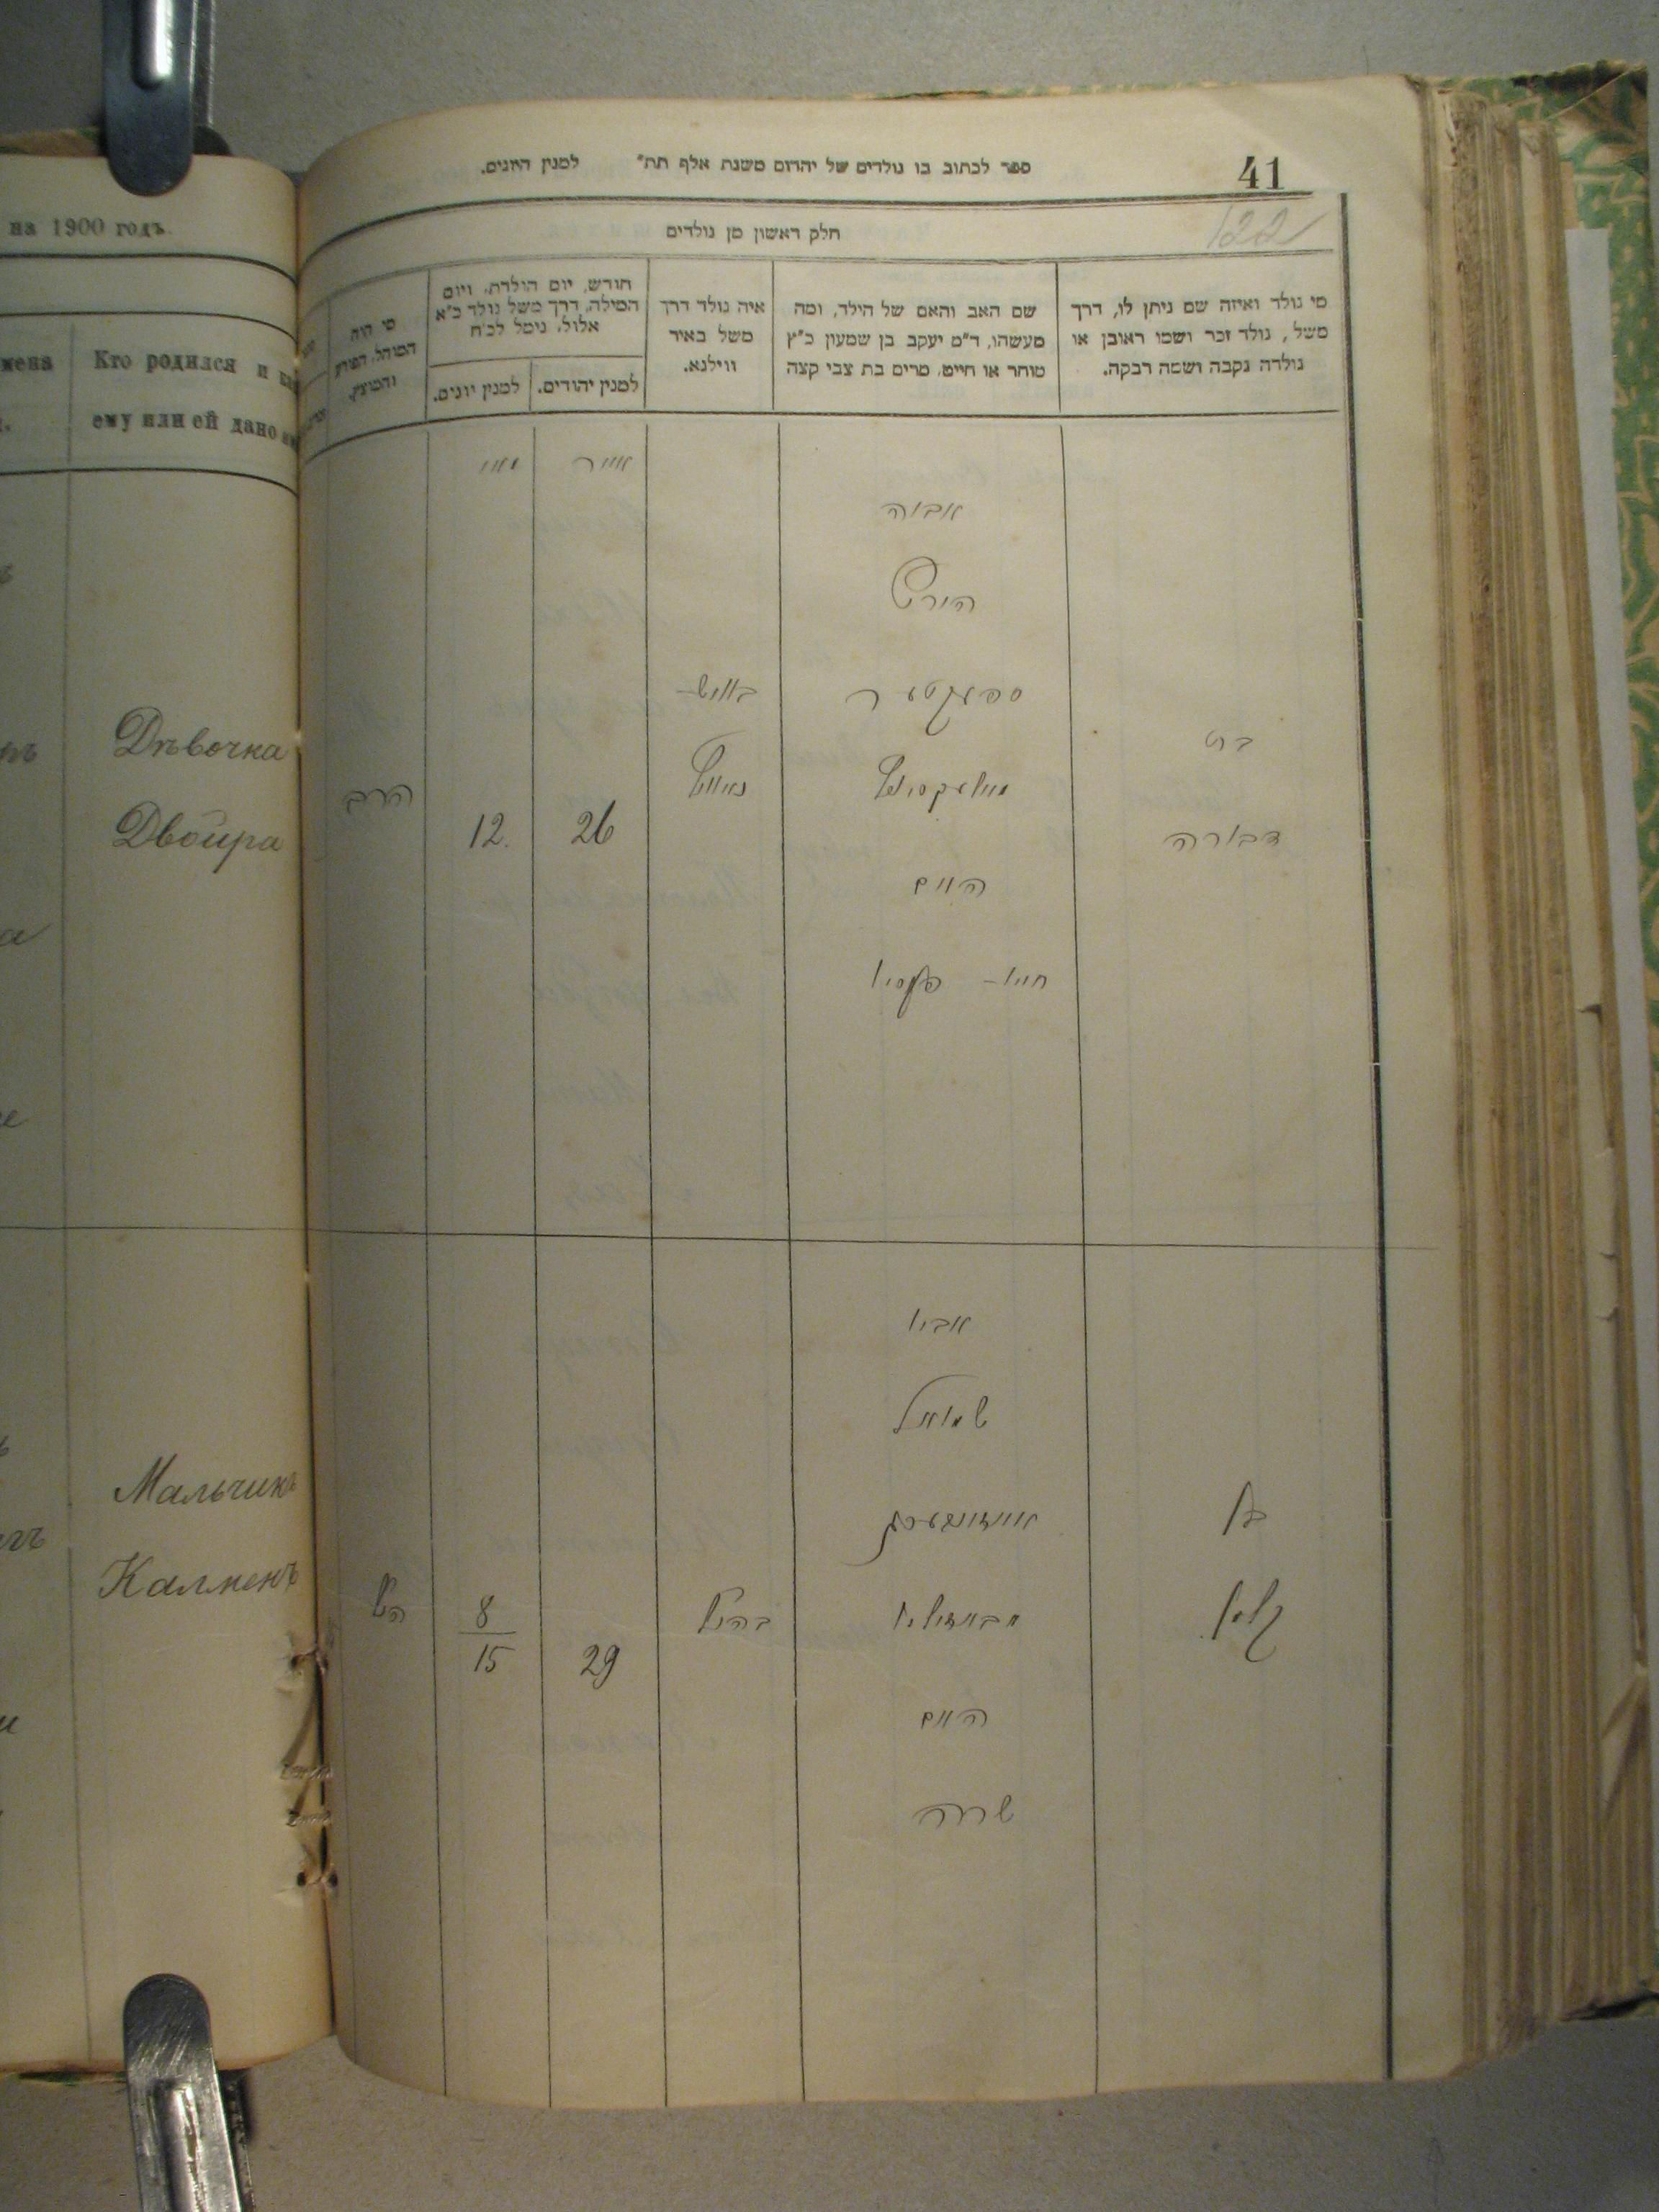 на 1900 годъ.
Кто родился и
ему или ей дано
Дѣвочка
Двойра
Мальчикъ
Калменъ
41
ספר לכתוב בו נולדים של יהדום משנת אלף תת״ למנין היונים.
122
חלק ראשון מן נולדים
מי נולד ואיזה שם ניתן לו, דרך
משל, נולד זכר ושמו ראובן או
נולדה נקבה ושמה רבקה.
שם האב והאם של הילד, ומה
מעשהו, ד״מ יעקב בן שמעון כ״ץ
סוחר או חייט, מרים בת צבי קצה
איה נולד דרך
משל באיר
ווילנא.
חודש, יום הולדת, ויום
המילה, דרך משל נולד כ״א
אלול, נימל לכ״ח
למנין יהודים.
למנין יונים.
מי היה
המוהל, הפורע
והמוצץ.
אייר
מאי
אבוה
הירש
ספעקטער
בת
דבורה
26
12.
הרב
האם
חיי-
אביו
שמואל
בן
קלמן
האם
שרה
29
8
15